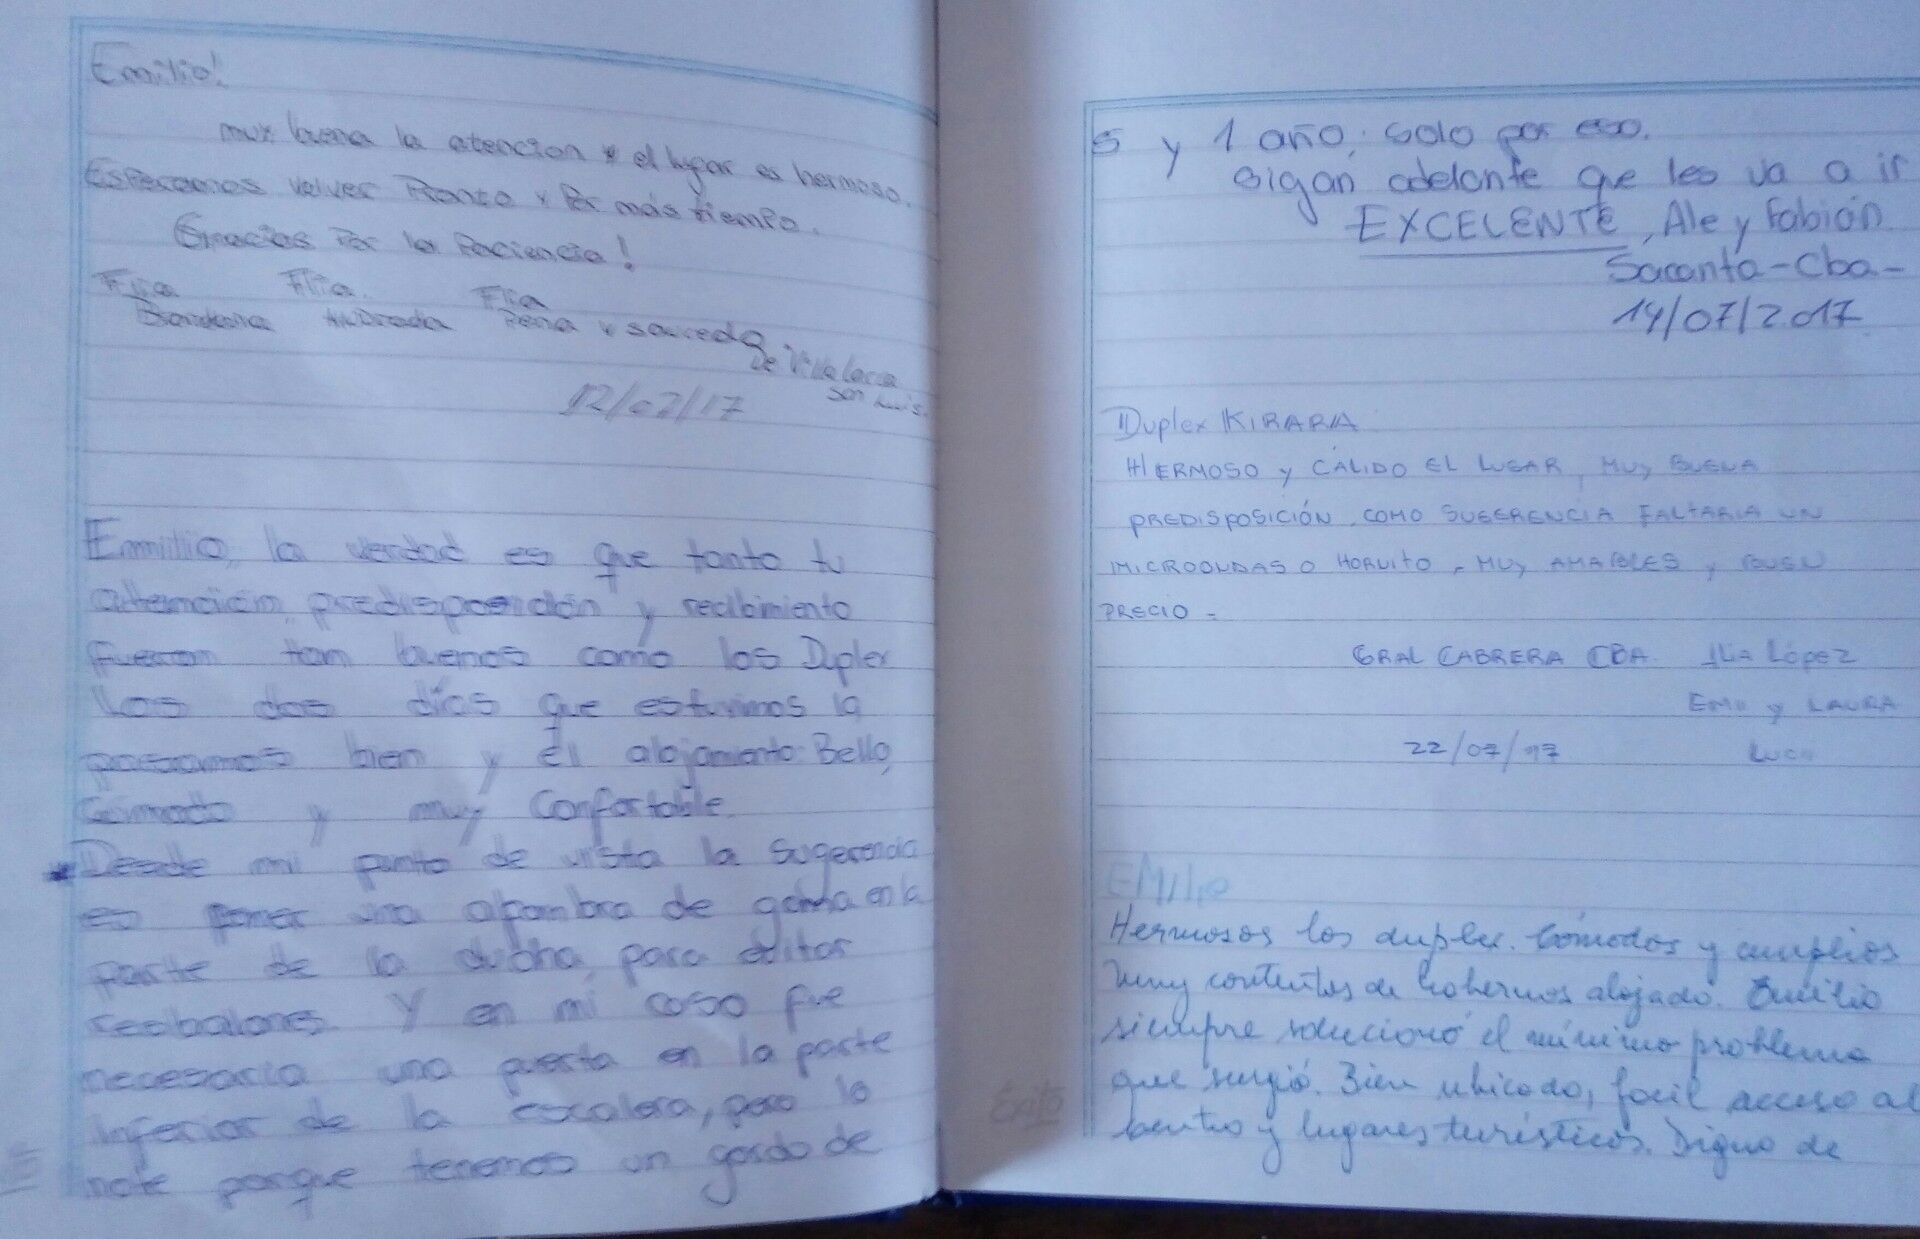 Emilio!
muy buena la atencion y el lugar es hermoso.
Esperamos volver Pronto y Por más tiempo.
Gracias Por la Paciencia!
Flia Flia. Flia
Andrada Peña y Saucedo
De Villa
San Luis.
12/07/17
Emilio, la verdad es que tanto tu
atención, predisposición y recibimiento
fueron tan buenos como los Duplex
Los dos días que estuvimos la
pasamos bien y el alojamiento Bello,
Cómodo y muy Confortable.
Desde mi punto de vista la sugerencia
es poner una alfombra de goma en la
parte de la ducha, para evitar
resbalones. Y en mi caso fue
necesaria una puerta en la parte
inferior de la escalera, pero lo
note porque tenemos un gordo de
5 y 1 año, solo por eso.
Sigan adelante que les va a ir
EXCELENTE, Ale y Fabián
Sacanta-Cba-
14/07/2017
Duplex KIRARA
HERMOSO y CALIDO EL LUGAR, MUY BUENA
PREDISPOSICIÓN, COMO SUGERENCIA FALTARIA UN
MICROONDAS O HORNITO, MUY AMABLES y BUEN
PRECIO -
GRAL CABRERA CBA. López
y LAURA
22/07/17
EMilio
Hermosos los duplex. Cómodos y amplios
Muy contentos de habernos alojado. Emilio
siempre solucionó el mínimo problema
que surgió. Bien ubicado, facil acceso al
centro y lugares turísticos. Digno de
Éxito